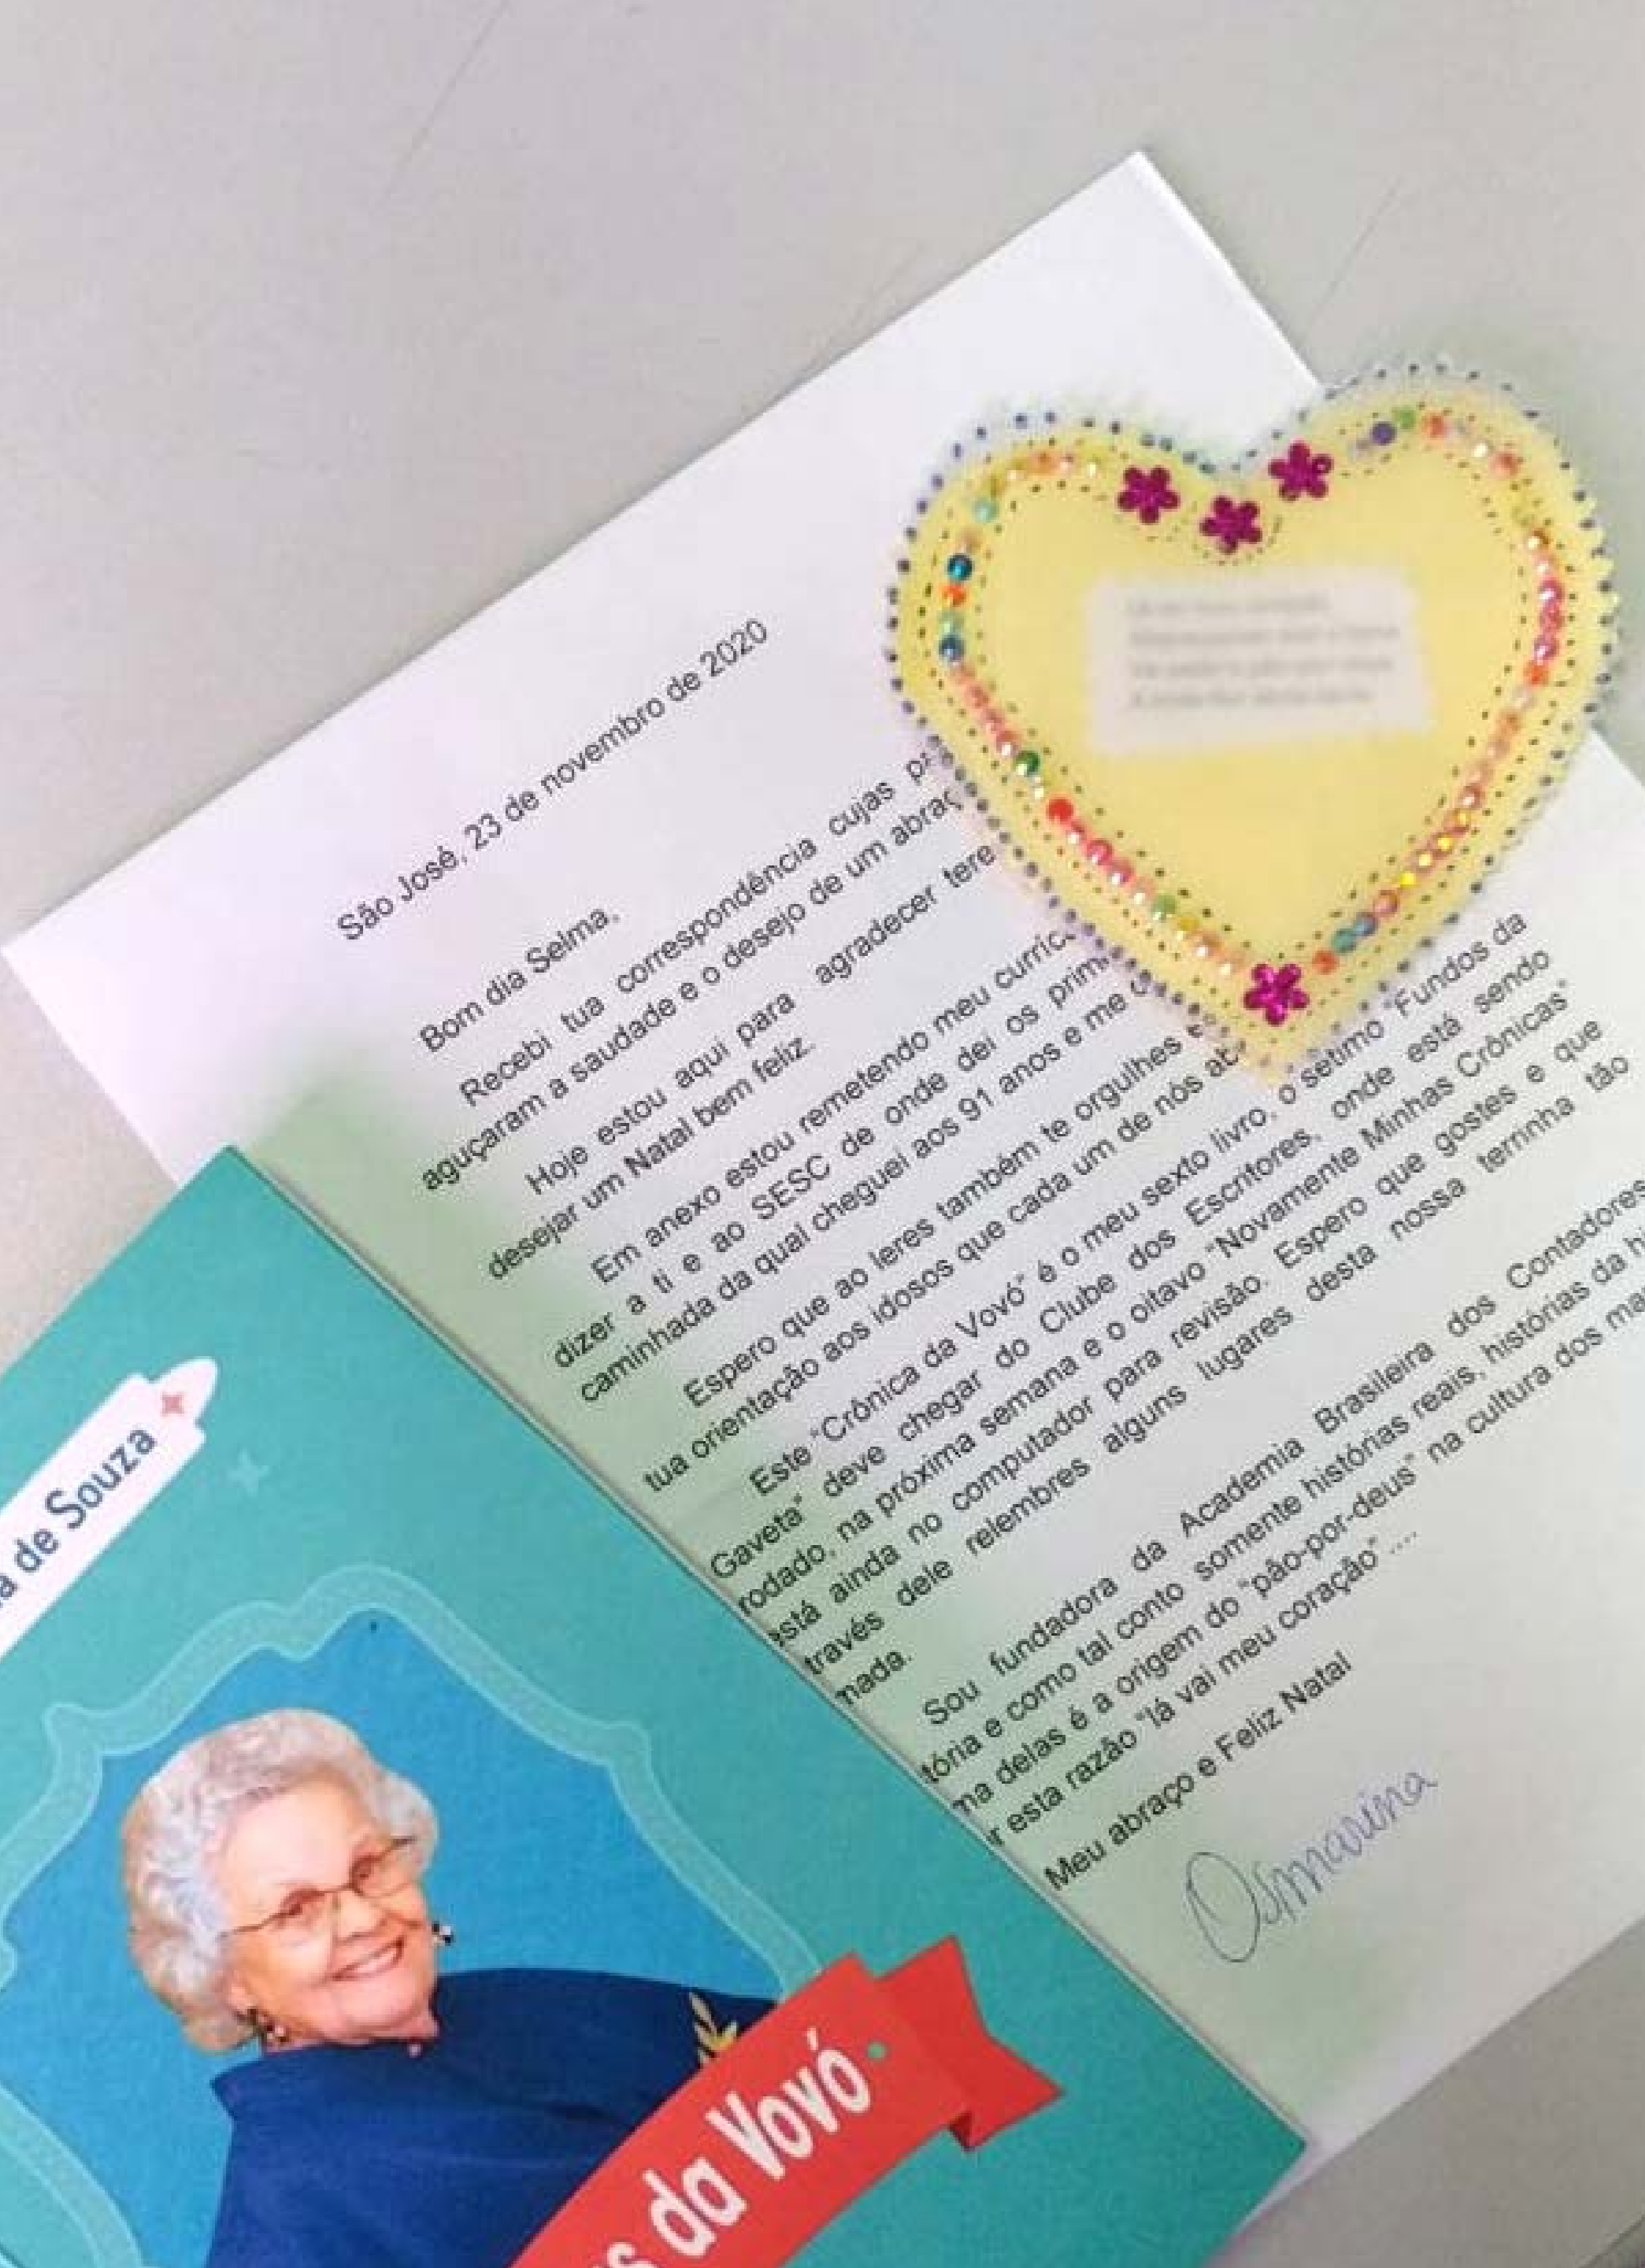 São José, 23 de novembro de 2020
Bom dia Selma,
Recebi tua correspondência cujas
aguçaram a saudade e o desejo de um abraç
Hoje estou aqui para agradecer tere
desejar um Natal bem feliz.
Em anexo estou remetendo meu curríc
dizer a ti e ao SESC de onde dei os prim
caminhada da qual cheguei aos 91 anos e me
Espero que ao leres também te orgulhes
tua orientação aos idosos que cada um de nós ab
Este "Crônica da Vovó" é o meu sexto livro, o sétimo "Fundos da
Gaveta" deve chegar do Clube dos Escritores, onde está sendo
rodado, na próxima semana e o oitavo "Novamente Minhas Crônicas"
está ainda no computador para revisão. Espero que gostes e que
través dele relembres alguns lugares desta nossa terrinha tão
mada.
Sou fundadora da Academia Brasileira dos Contadores
tória e como tal conto somente histórias reais, histórias da hi
ma delas é a origem do "pão-por-deus" na cultura dos ma
r esta razão "lá vai meu coração" ....
Meu abraço e Feliz Natal
Osmarina
a de Souza
s da Vovó